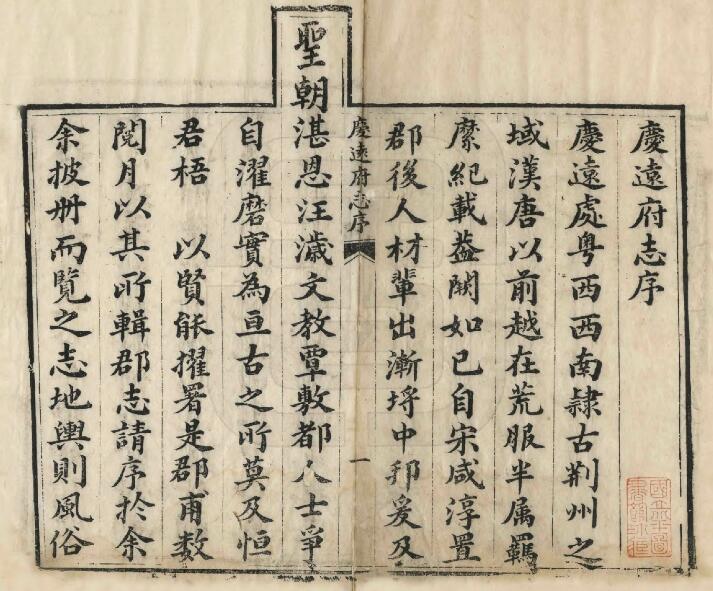 慶遠府志序
慶遠處粤西西南隷古荆州之
域漢唐以前越在荒服半属羈
縻紀載葢闕如已自宋咸淳置
郡後人材輩出漸埓中邦爰及
慶遠府志序
一
聖朝湛恩汪濊文教覃敷都人士爭
自濯磨實為亘古之所莫及恒
君梧 以賢能擢署是郡甫数
閲月以其所輯郡志請序於余
余披册而覽之志地輿則風俗